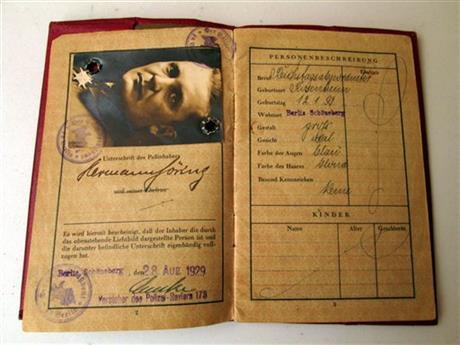 Unterschrift des Paßinhabers
Hermann Göring
und seiner Ehefrau
Es wird hiermit bescheinigt, daß der Inhaber die durch
das obenstehende Lichtbild dargestellte Person ist und
die darunter befindliche Unterschrift eigenhändig voll-
zogen hat.
Berlin Schöneberg, den 28 AUG 1929
Vorsteher des Polizei-Reviers 173
2
PERSONENBESCHREIBUNG
Ehefrau
Beruf Reichstagsabgeordneter
Geburtsort Rosenheim
Geburtstag 12.1.93
Wohnort Berlin Schöneberg
Gestalt groß
Gesicht oval
Farbe der Augen blau
Farbe des Haares blond
Besond. Kennzeichen
keine
KINDER
Name Alter Geschlecht
3